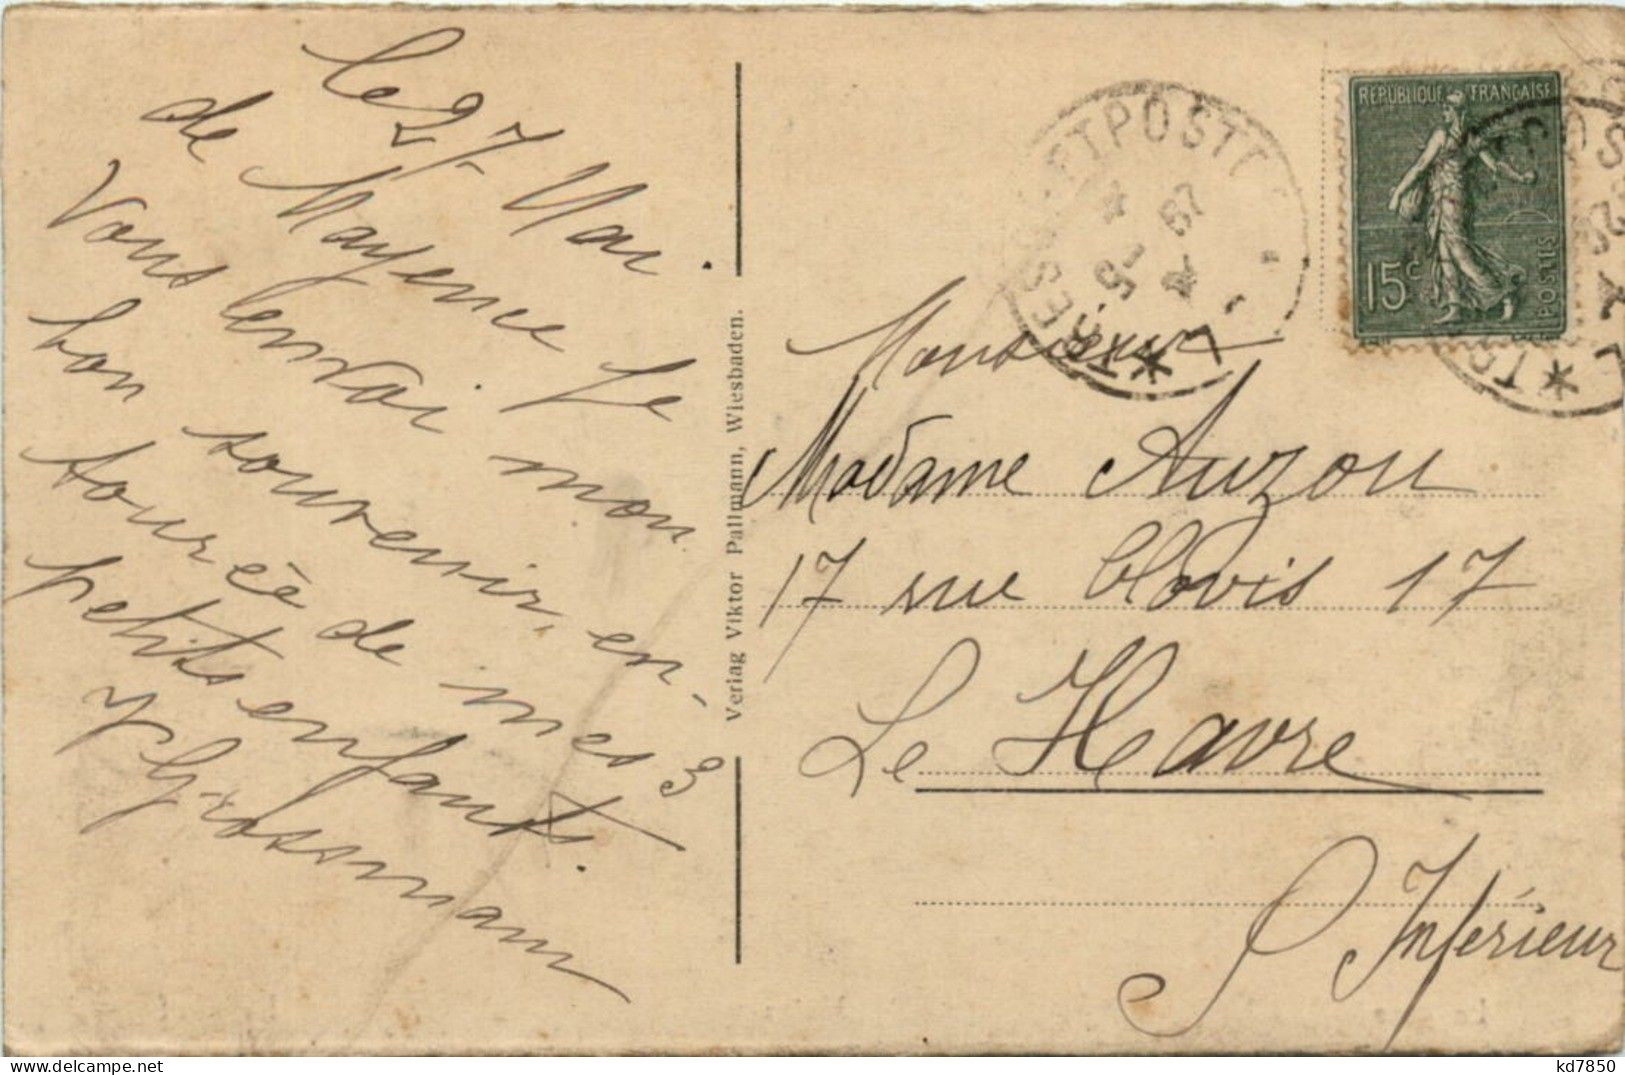 le 27 Mai.
de Mayence Je
Vous envoi mon
bon souvenir, en-
tourée de mes 3
petits enfants.
Grossmann
Verlag Viktor Pallmann, Wiesbaden.
REPUBLIQUE FRANÇAISE
15c
POSTES
TRESOR ET POSTES
Monsieur
Madame Auzou
17 rue Clovis 17
Le Havre
S Inférieur
kd7850